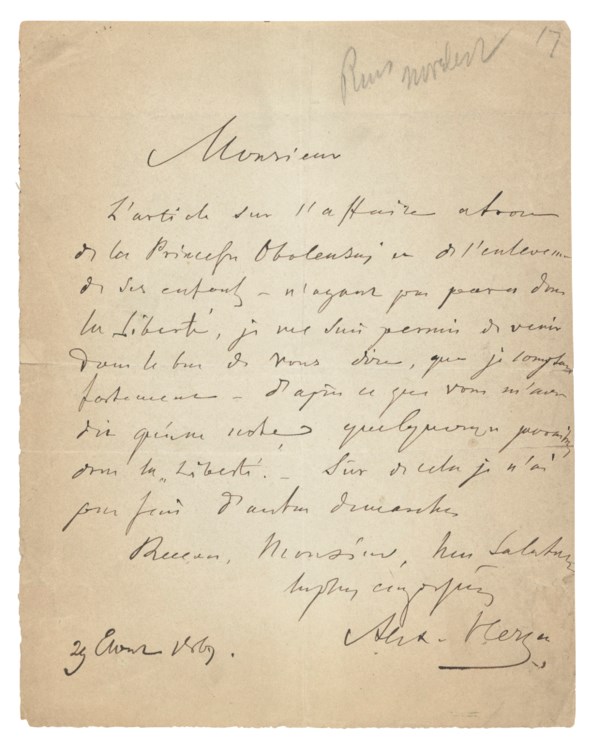 17
Monsieur
L'article sur l'affaire atroce
de la Princesse Obolensky et de l'enlèvement
de ses enfants – n'ayant pas paru dans
la Liberté, je me suis permis de venir
dans le but de vous dire, que je comptais
fortement – d'après ce que vous m'avez
dit qu'une note quelconque
dans la „Liberté". – Sûr de cela je n'ai
pas fait d'autres démarches
Recevez, Monsieur, mes salutations
les plus empressées
Alex. Herzen
29 Août 1869.